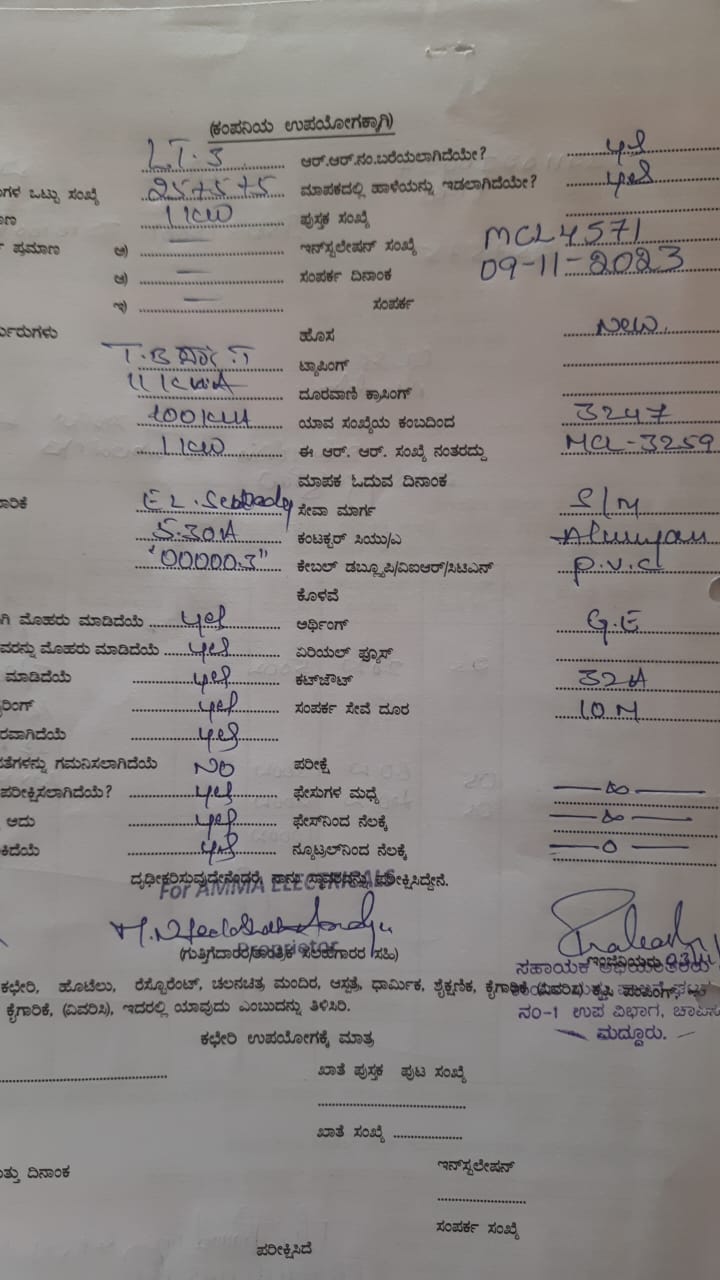 (ಕಂಪನಿಯ ಉಪಯೋಗಕ್ಕಾಗಿ)
LT-3 ಆರ್.ಆರ್.ನಂ.ಬರೆಯಲಾಗಿದೆಯೇ? yes
ಗಳ ಒಟ್ಟು ಸಂಖ್ಯೆ 25+5+5 ಮಾಪಕದಲ್ಲಿ ಹಾಳೆಯನ್ನು ಇಡಲಾಗಿದೆಯೇ? yes
1 KW ಪುಸ್ತಕ ಸಂಖ್ಯೆ
ಪ್ರಮಾಣ ಅ) ಇನ್‌ಸ್ಟಲೇಷನ್ ಸಂಖ್ಯೆ MCL4571
ಆ) ಸಂಪರ್ಕ ದಿನಾಂಕ 09-11-2023
ಇ) ಸಂಪರ್ಕ
ಹೊಸ New
ಟ್ಯಾಪಿಂಗ್
11 ದೂರವಾಣಿ ಕ್ರಾಸಿಂಗ್
100 ಯಾವ ಸಂಖ್ಯೆಯ ಕಂಬದಿಂದ 3247
1 KW ಈ ಆರ್. ಆರ್. ಸಂಖ್ಯೆ ನಂತರದ್ದು MCL-3259
ಮಾಪಕ ಓದುವ ದಿನಾಂಕ
ಸೇವಾ ಮಾರ್ಗ S/M
5-30A ಕಂಟಕ್ಟರ್ ಸಿಯು/ಎ
"00000.3" ಕೇಬಲ್ ಡಬ್ಲ್ಯೂಪಿ/ವಿಐಆರ್/ಸಿಟಿಎಸ್ P.V.C
ಕೊಳವೆ
ಮೊಹರು ಮಾಡಿದೆಯೆ yes ಅರ್ಥಿಂಗ್ G.E
ಮೊಹರು ಮಾಡಿದೆಯೆ yes ಏರಿಯಲ್ ಫ್ಯೂಸ್
ಮಾಡಿದೆಯೆ yes ಕಟ್‌ಔಟ್ 32A
yes ಸಂಪರ್ಕ ಸೇವೆ ದೂರ 10 M
yes
ಗಮನಿಸಲಾಗಿದೆಯೆ NO ಪರೀಕ್ಷೆ
ಪರೀಕ್ಷಿಸಲಾಗಿದೆಯೆ? yes ಫೇಸುಗಳ ಮಧ್ಯೆ ∞
ಅದು yes ಫೇಸ್‌ನಿಂದ ನೆಲಕ್ಕೆ ∞
yes ನ್ಯೂಟ್ರಲ್‌ನಿಂದ ನೆಲಕ್ಕೆ 0
ದೃಢೀಕರಿಸುವುದೇನೆಂದರೆ, ನಾನು ಸ್ಥಾವರವನ್ನು ಪರೀಕ್ಷಿಸಿದ್ದೇನೆ.
For AMMA ELECTRICALS
Proprietor
(ಗುತ್ತಿಗೆದಾರರ/ತಾಂತ್ರಿಕ ಸಲಹೆಗಾರರ ಸಹಿ) ಇಂಜಿನಿಯರು
ಕಛೇರಿ, ಹೊಟೆಲು, ರೆಸ್ಟೋರೆಂಟ್, ಚಲನಚಿತ್ರ ಮಂದಿರ, ಆಸ್ಪತ್ರೆ, ಧಾರ್ಮಿಕ, ಶೈಕ್ಷಣಿಕ, ಕೈಗಾರಿಕೆ (ವಿವರಿಸಿ) ಕೃಷಿ ಪಂಪಿಂಗ್,
ಕೈಗಾರಿಕೆ, (ವಿವರಿಸಿ), ಇದರಲ್ಲಿ ಯಾವುದು ಎಂಬುದನ್ನು ತಿಳಿಸಿರಿ.
ನಂ-1 ಉಪ ವಿಭಾಗ,
ಮದ್ದೂರು.
ಕಛೇರಿ ಉಪಯೋಗಕ್ಕೆ ಮಾತ್ರ
ಖಾತೆ ಪುಸ್ತಕ ಪುಟ ಸಂಖ್ಯೆ
ಖಾತೆ ಸಂಖ್ಯೆ
ದಿನಾಂಕ ಇನ್‌ಸ್ಟಲೇಷನ್
ಸಂಪರ್ಕ ಸಂಖ್ಯೆ
ಪರೀಕ್ಷಿಸಿದೆ